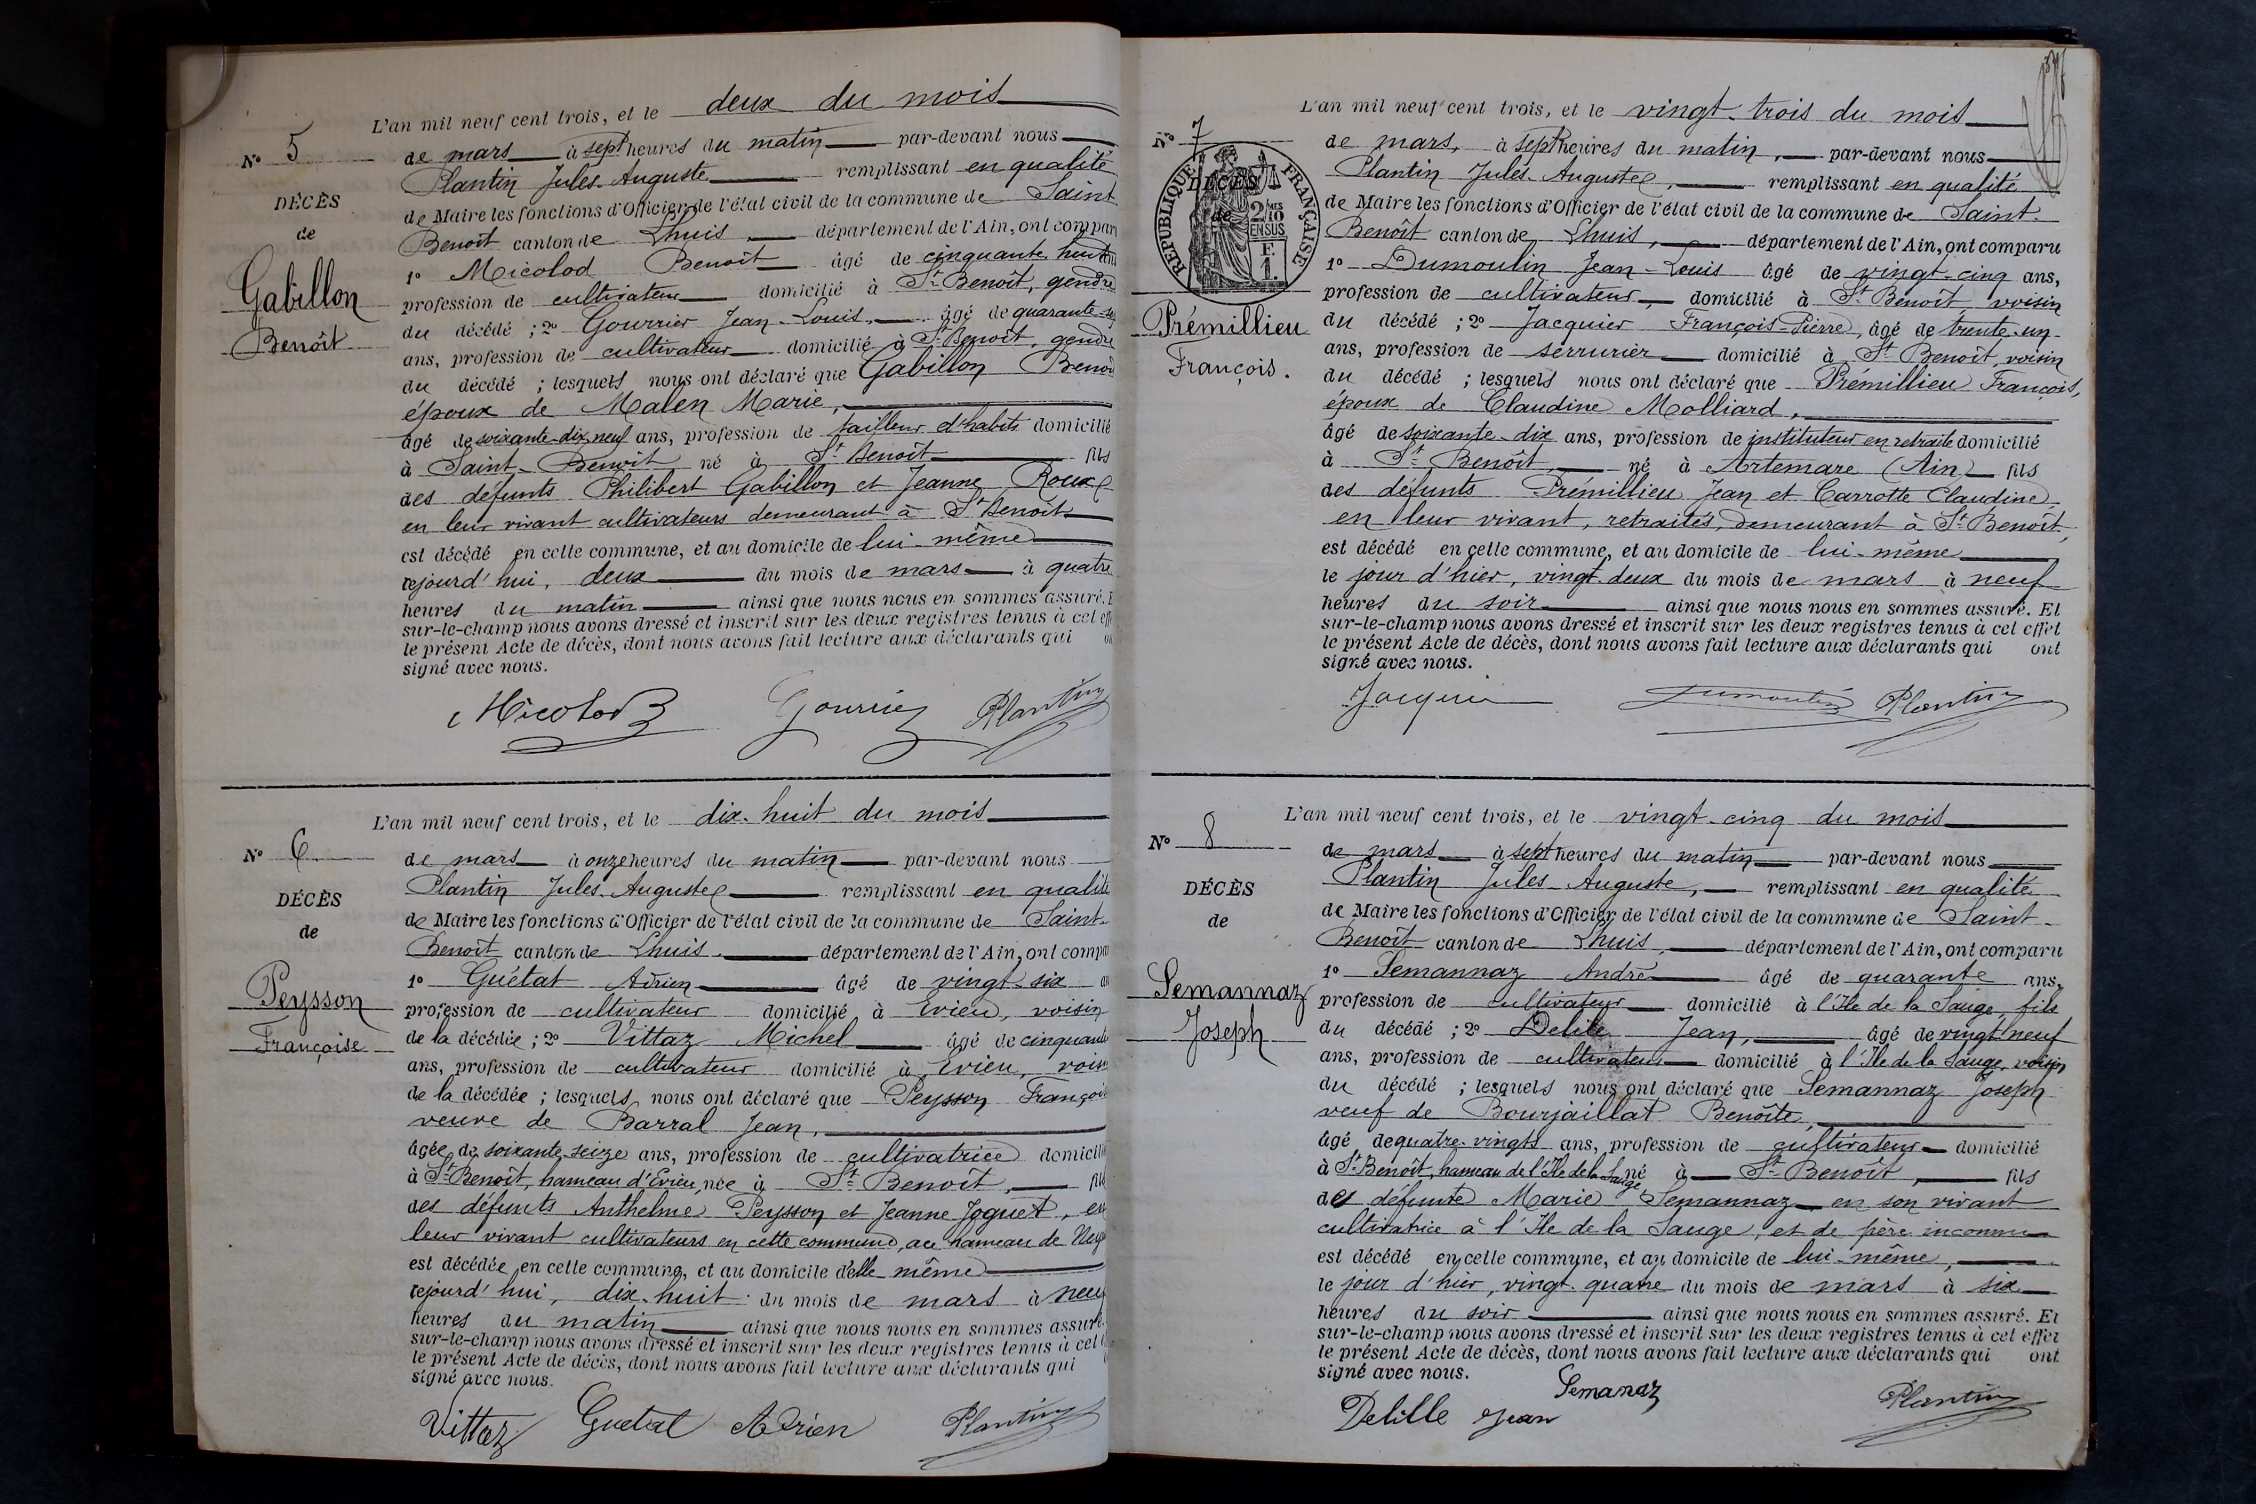 L'an mil neuf cent trois, et le deux du mois
N° 5
de mars à sept heures du matin par-devant nous
Plantin Jules-Auguste remplissant en qualité
DÉCÈS
de Maire les fonctions d'Officier de l'état civil de la commune de Saint
de
Benoît canton de Lhuis, département de l'Ain, ont compar
1° Micolod Benoît âgé de cinquante-huit
Gabillon
profession de cultivateur domicilié à St Benoît, gendre
du décédé ; 2° Gourrier Jean-Louis, âgé de quarante
Benoît
ans, profession de cultivateur domicilié à St Benoît, gendre
du décédé ; lesquels nous ont déclaré que Gabillon Benoît
époux de Malen Marie,
âgé de soixante-dix-neuf ans, profession de tailleur d'habits domicilié
à Saint-Benoît né à St Benoît fils
des défunts Philibert Gabillon et Jeanne Roux
en leur vivant cultivateurs demeurant à St Benoît
est décédé en cette commune, et au domicile de lui-même
cejourd'hui, deux du mois de mars à quatre
heures du matin ainsi que nous nous en sommes assuré. E
sur-le-champ nous avons dressé et inscrit sur les deux registres tenus à cet eff
le présent Acte de décès, dont nous avons fait lecture aux déclarants qui o
signé avec nous.
Micolod Gourrier Plantin
L'an mil neuf cent trois, et le dix-huit du mois
N° 6
de mars à onze heures du matin par-devant nous
Plantin Jules-Auguste remplissant en qualité
DÉCÈS
de Maire les fonctions d'Officier de l'état civil de la commune de Saint-
de
Benoît canton de Lhuis. département de l'Ain, ont compa
1° Guétat Adrien âgé de vingt-six an
Peysson
profession de cultivateur domicilié à Evieu, voisin
Françoise
de la décédée ; 2° Vittaz Michel âgé de cinquante
ans, profession de cultivateur domicilié à Evieu, voisin
de la décédée ; lesquels nous ont déclaré que Peysson Françoise
veuve de Barral Jean,
âgée de soixante-seize ans, profession de cultivatrice domicilié
à St Benoît, hameau d'Evieu, née à St Benoît, fil
des défunts Anthelme Peysson et Jeanne Joguet, en
leur vivant cultivateurs en cette commune, au hameau de
est décédée en cette commune, et au domicile d'elle-même
cejourd'hui, dix-huit du mois de mars à neuf
heures du matin ainsi que nous nous en sommes assuré.
sur-le-champ nous avons dressé et inscrit sur les deux registres tenus à cet
le présent Acte de décès, dont nous avons fait lecture aux déclarants qui
signé avec nous.
Vittaz Guetat Adrien Plantin
L'an mil neuf cent trois, et le vingt-trois du mois
N° 7
de mars, à sept heures du matin, par-devant nous
Plantin Jules-Auguste, remplissant en qualité
RÉPUBLIQUE FRANÇAISE
2 MES 10 EN SUS
F. 1.
DÉCÈS
de Maire les fonctions d'Officier de l'état civil de la commune de Saint-
de
Benoît canton de Lhuis, département de l'Ain, ont comparu
1° Dumoulin Jean-Louis âgé de vingt-cinq ans,
profession de cultivateur, domicilié à St Benoît, voisin
Prémillieu
du décédé ; 2° Jacquier François-Pierre, âgé de trente-un
ans, profession de serrurier domicilié à St Benoît, voisin
François.
du décédé ; lesquels nous ont déclaré que Prémillieu François,
époux de Claudine Molliard,
âgé de soixante-dix ans, profession de instituteur en retraite domicilié
à St Benoît, né à Artemare (Ain) fils
des défunts Prémillieu Jean et Carrotte Claudine
en leur vivant, retraités, demeurant à St Benoît,
est décédé en cette commune, et au domicile de lui-même
le jour d'hier, vingt-deux du mois de mars à neuf
heures du soir ainsi que nous nous en sommes assuré. Et
sur-le-champ nous avons dressé et inscrit sur les deux registres tenus à cet effet
le présent Acte de décès, dont nous avons fait lecture aux déclarants qui ont
signé avec nous.
Jacquier Dumoulin Plantin
L'an mil neuf cent trois, et le vingt-cinq du mois
N° 8
de mars à sept heures du matin par-devant nous
Plantin Jules-Auguste, remplissant en qualité
DÉCÈS
de Maire les fonctions d'Officier de l'état civil de la commune de Saint-
de
Benoît canton de Lhuis, département de l'Ain, ont comparu
1° Semannaz André âgé de quarante ans,
Semannaz
profession de cultivateur domicilié à l'Ile de la Sauge, fils
Joseph
du décédé ; 2° Delile Jean, âgé de vingt-neuf
ans, profession de cultivateur domicilié à l'Ile de la Sauge, voisin
du décédé ; lesquels nous ont déclaré que Semannaz Joseph
veuf de Bourjaillat Benoîte,
âgé de quatre-vingts ans, profession de cultivateur domicilié
à St Benoît, hameau de l'Ile de la Sauge né à St Benoît, fils
de défunte Marie Semannaz en son vivant
cultivatrice à l'Ile de la Sauge, et de père inconnu
est décédé en cette commune, et au domicile de lui-même,
le jour d'hier, vingt-quatre du mois de mars à six
heures du soir ainsi que nous nous en sommes assuré. Et
sur-le-champ nous avons dressé et inscrit sur les deux registres tenus à cet effet
le présent Acte de décès, dont nous avons fait lecture aux déclarants qui ont
signé avec nous.
Semanaz
Delille Jean Plantin